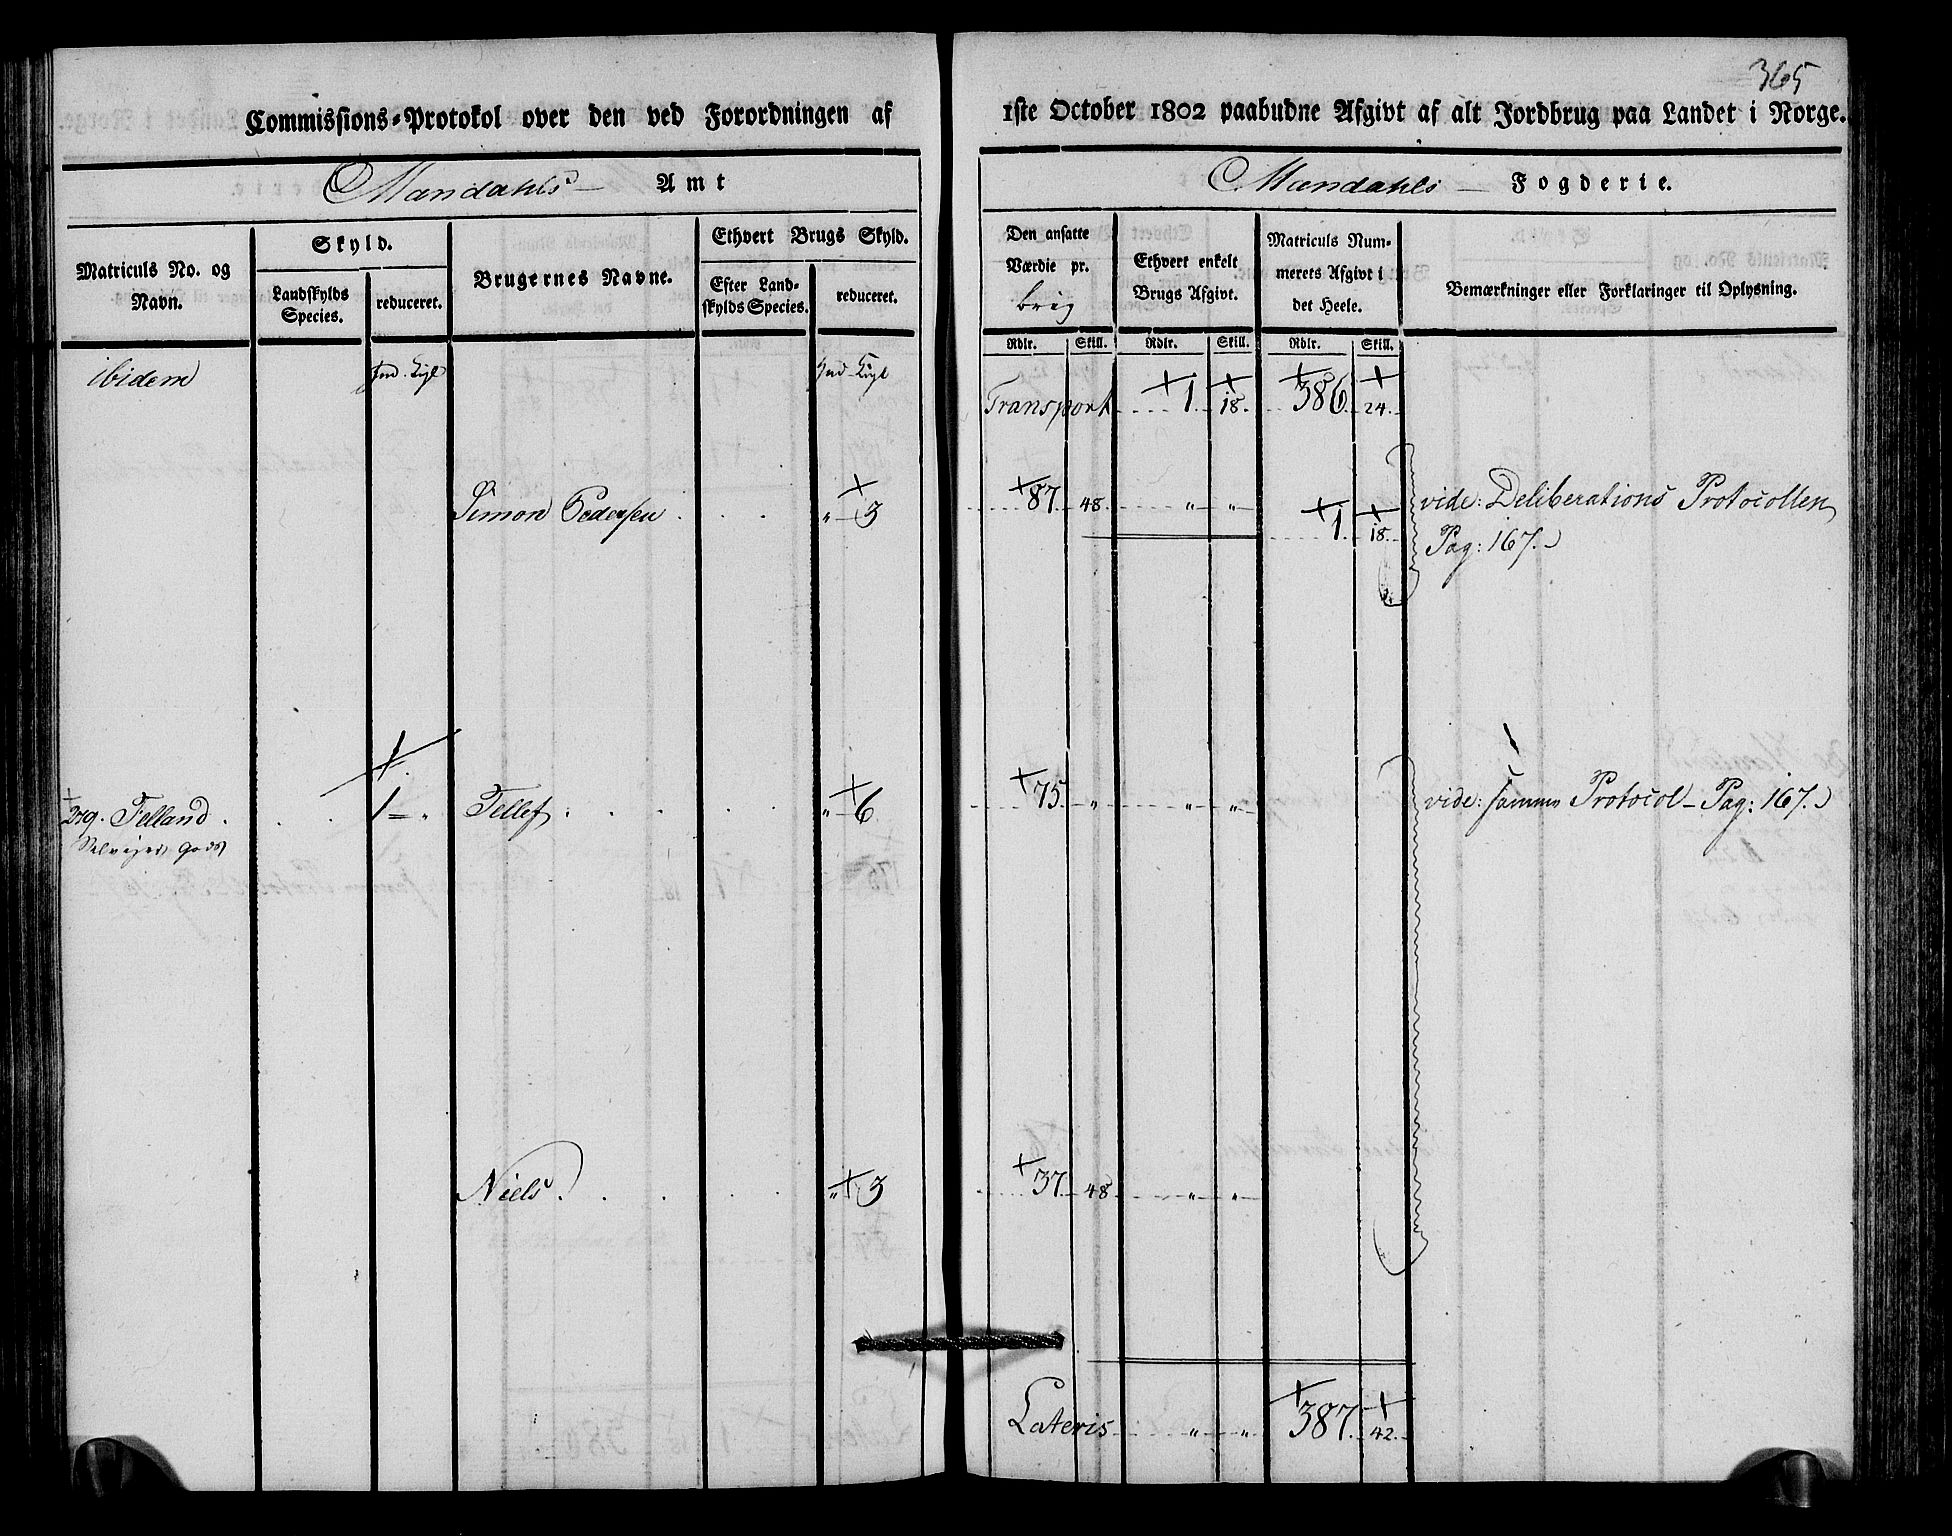 365
Commissions-Protokol over den ved Forordningen af 1ste October 1802 paabudne Afgivt af alt Jordbrug paa Landet i Norge.
Mandahls Amt
Mandahls Fogderie.
Matriculs No. og Navn.
Skyld.
Landskylds Species.
reduceret.
Brugernes Navne.
Ethvert Brugs Skyld.
Efter Landskylds Species.
reduceret.
Den ansatte Værdie pr. brig
Ethvert enkelt Brugs Afgivt.
Matriculs Nummerets Afgivt i det Heele.
Bemærkninger eller Forklaringer til Oplysning.
Rdlr. Skill. Rdlr. Skill. Rdlr. Skill.
ibidem
Transport 1 18 386 24
Simon Pedersen „ 3 87 48 „ „ 1 18 vide: Deliberations Protocollen
Pag: 167.
1 „ Tellef „ 6 75 „ „ „ vide: samme Protocol Pag: 167.
Niels „ 3 37 48 „ „
Lateris „ „ 387 42